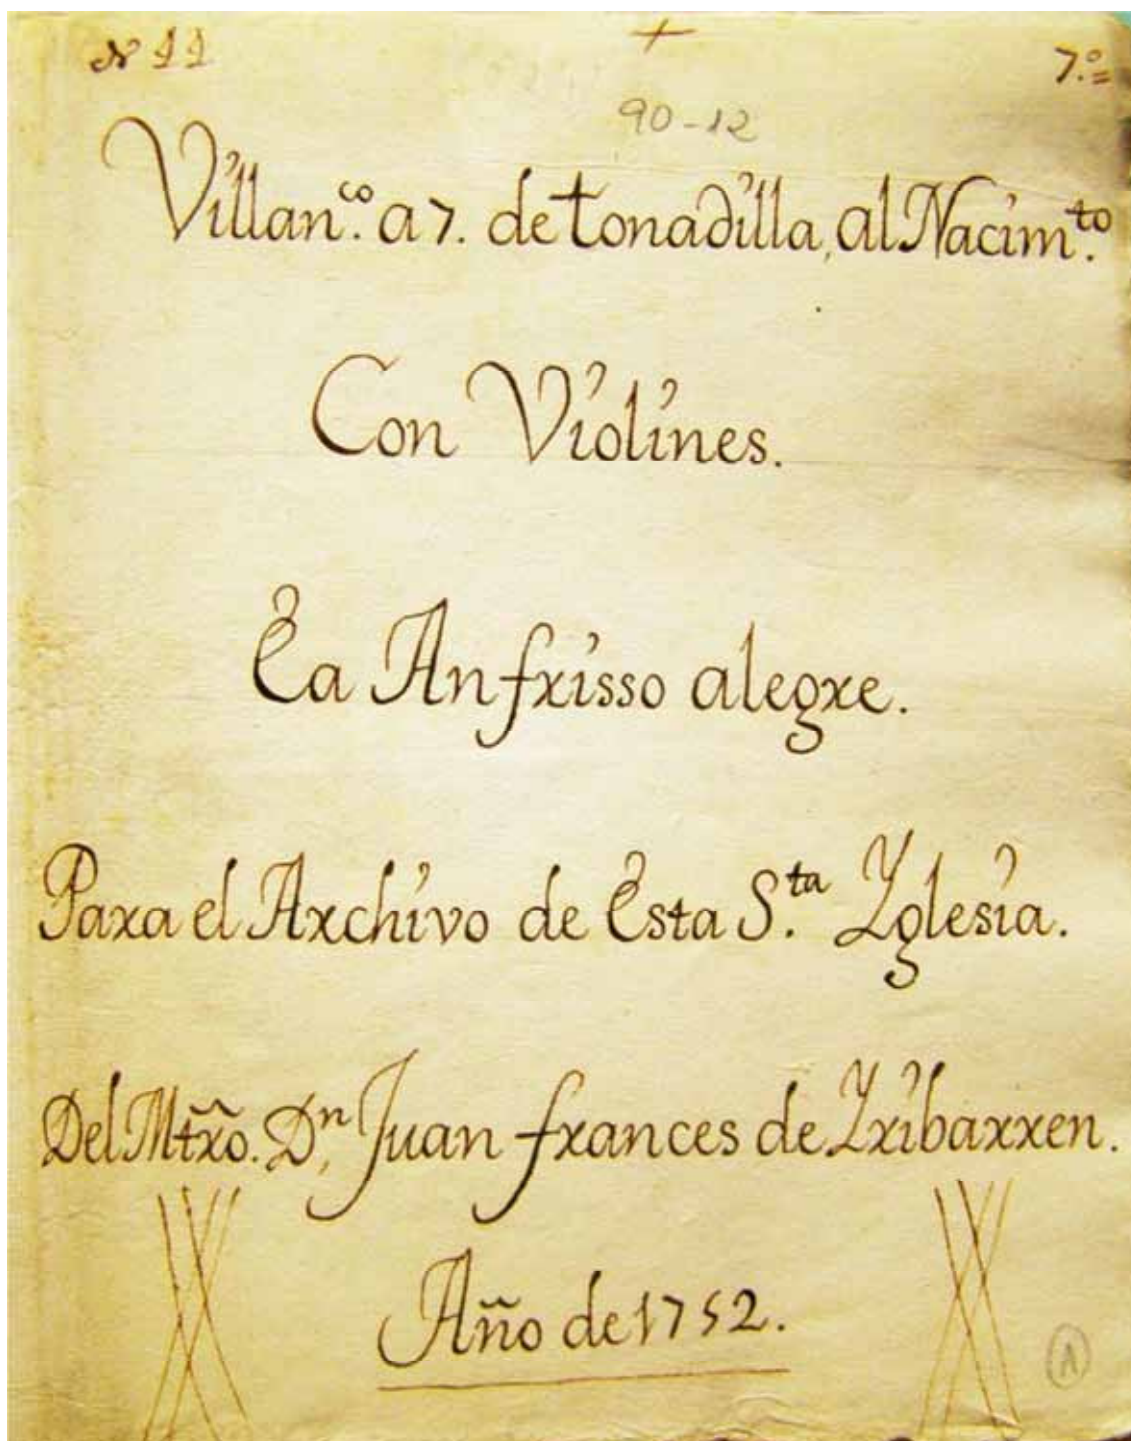 Nº 11 + 7.º
90-12
Villan.co a 7. de tonadilla, al Nacim.to
Con Violines.
Ea Anfrisso alegre.
Para el Archivo de Esta S.ta Yglesia.
Del Mtr̃o. D.n Juan frances de Yribarren.
Año de 1752.
1